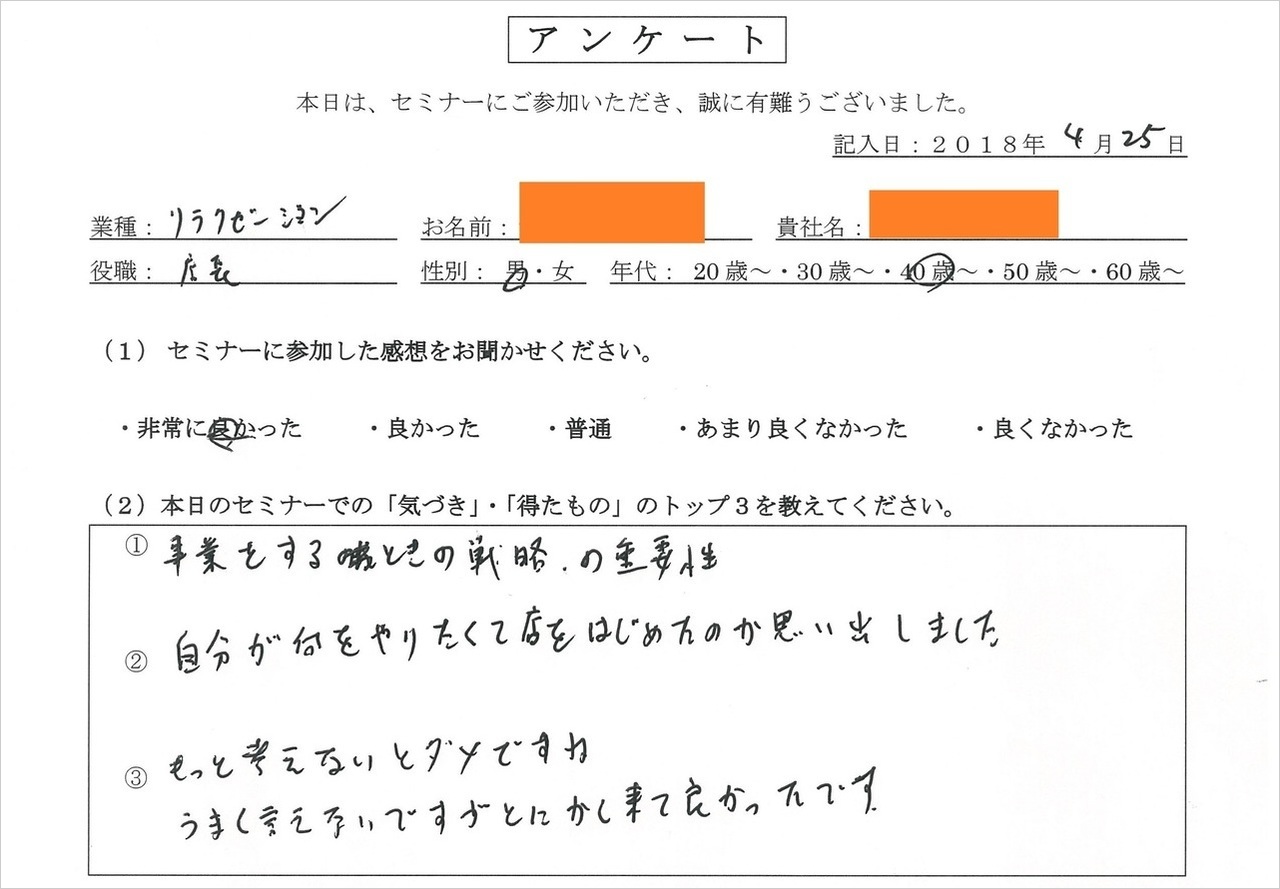 アンケート
本日は、セミナーにご参加いただき、誠に有難うございました。
記入日：２０１８年 4月25日
業種：リラクゼーション お名前： 貴社名：
役職：店長 性別：男・女 年代：20歳～・30歳～・40歳～・50歳～・60歳～
（１） セミナーに参加した感想をお聞かせください。
・非常に良かった ・良かった ・普通 ・あまり良くなかった ・良くなかった
（２）本日のセミナーでの「気づき」・「得たもの」のトップ３を教えてください。
① 事業をするときの戦略.の重要性
② 自分が何をやりたくて店をはじめたのか思い出しました
③ もっと考えないとダメですね
うまく言えないですがとにかく来て良かったです